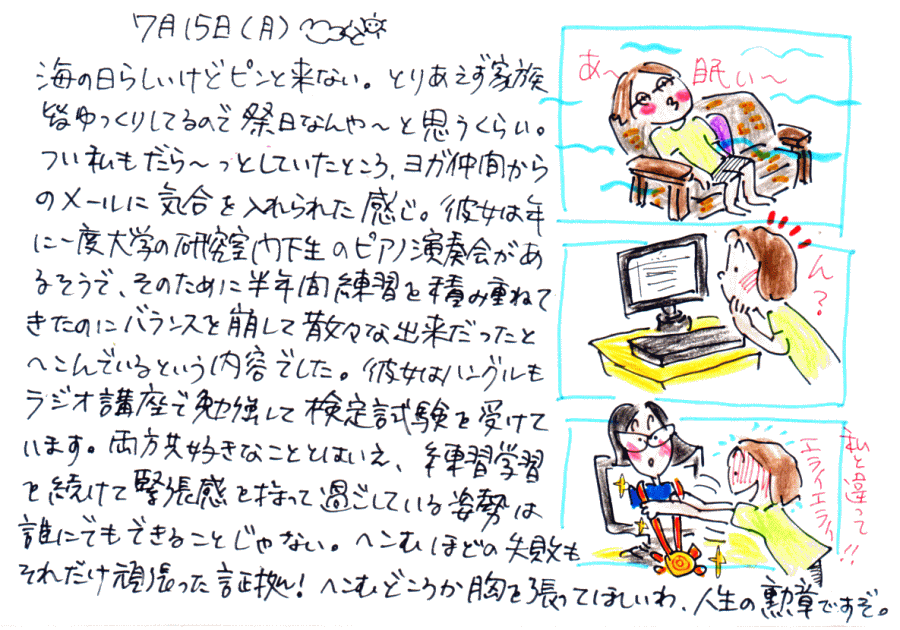 7月15日(月)
海の日らしいけどピンと来ない。とりあえず家族
皆ゆっくりしてるので祭日なんや〜と思うくらい。
つい私もだら〜っとしていたところ、ヨガ仲間から
のメールに気合を入れられた感じ。彼女は年
に一度大学の研究室門下生のピアノ演奏会があ
るそうで、そのために半年間練習を積み重ねて
きたのにバランスを崩して散々な出来だったと
へこんでいるという内容でした。彼女はハングルも
ラジオ講座で勉強して検定試験を受けて
います。両方共好きなこととはいえ、練習学習
を続けて緊張感を持って過ごしている姿勢は
誰にでもできることじゃない。へこむほどの失敗も
それだけ頑張った証拠!へこむどころか胸を張ってほしいわ、人生の勲章ですぞ。
あ〜
眠い〜
ん?
私と違って
エライエライ!!